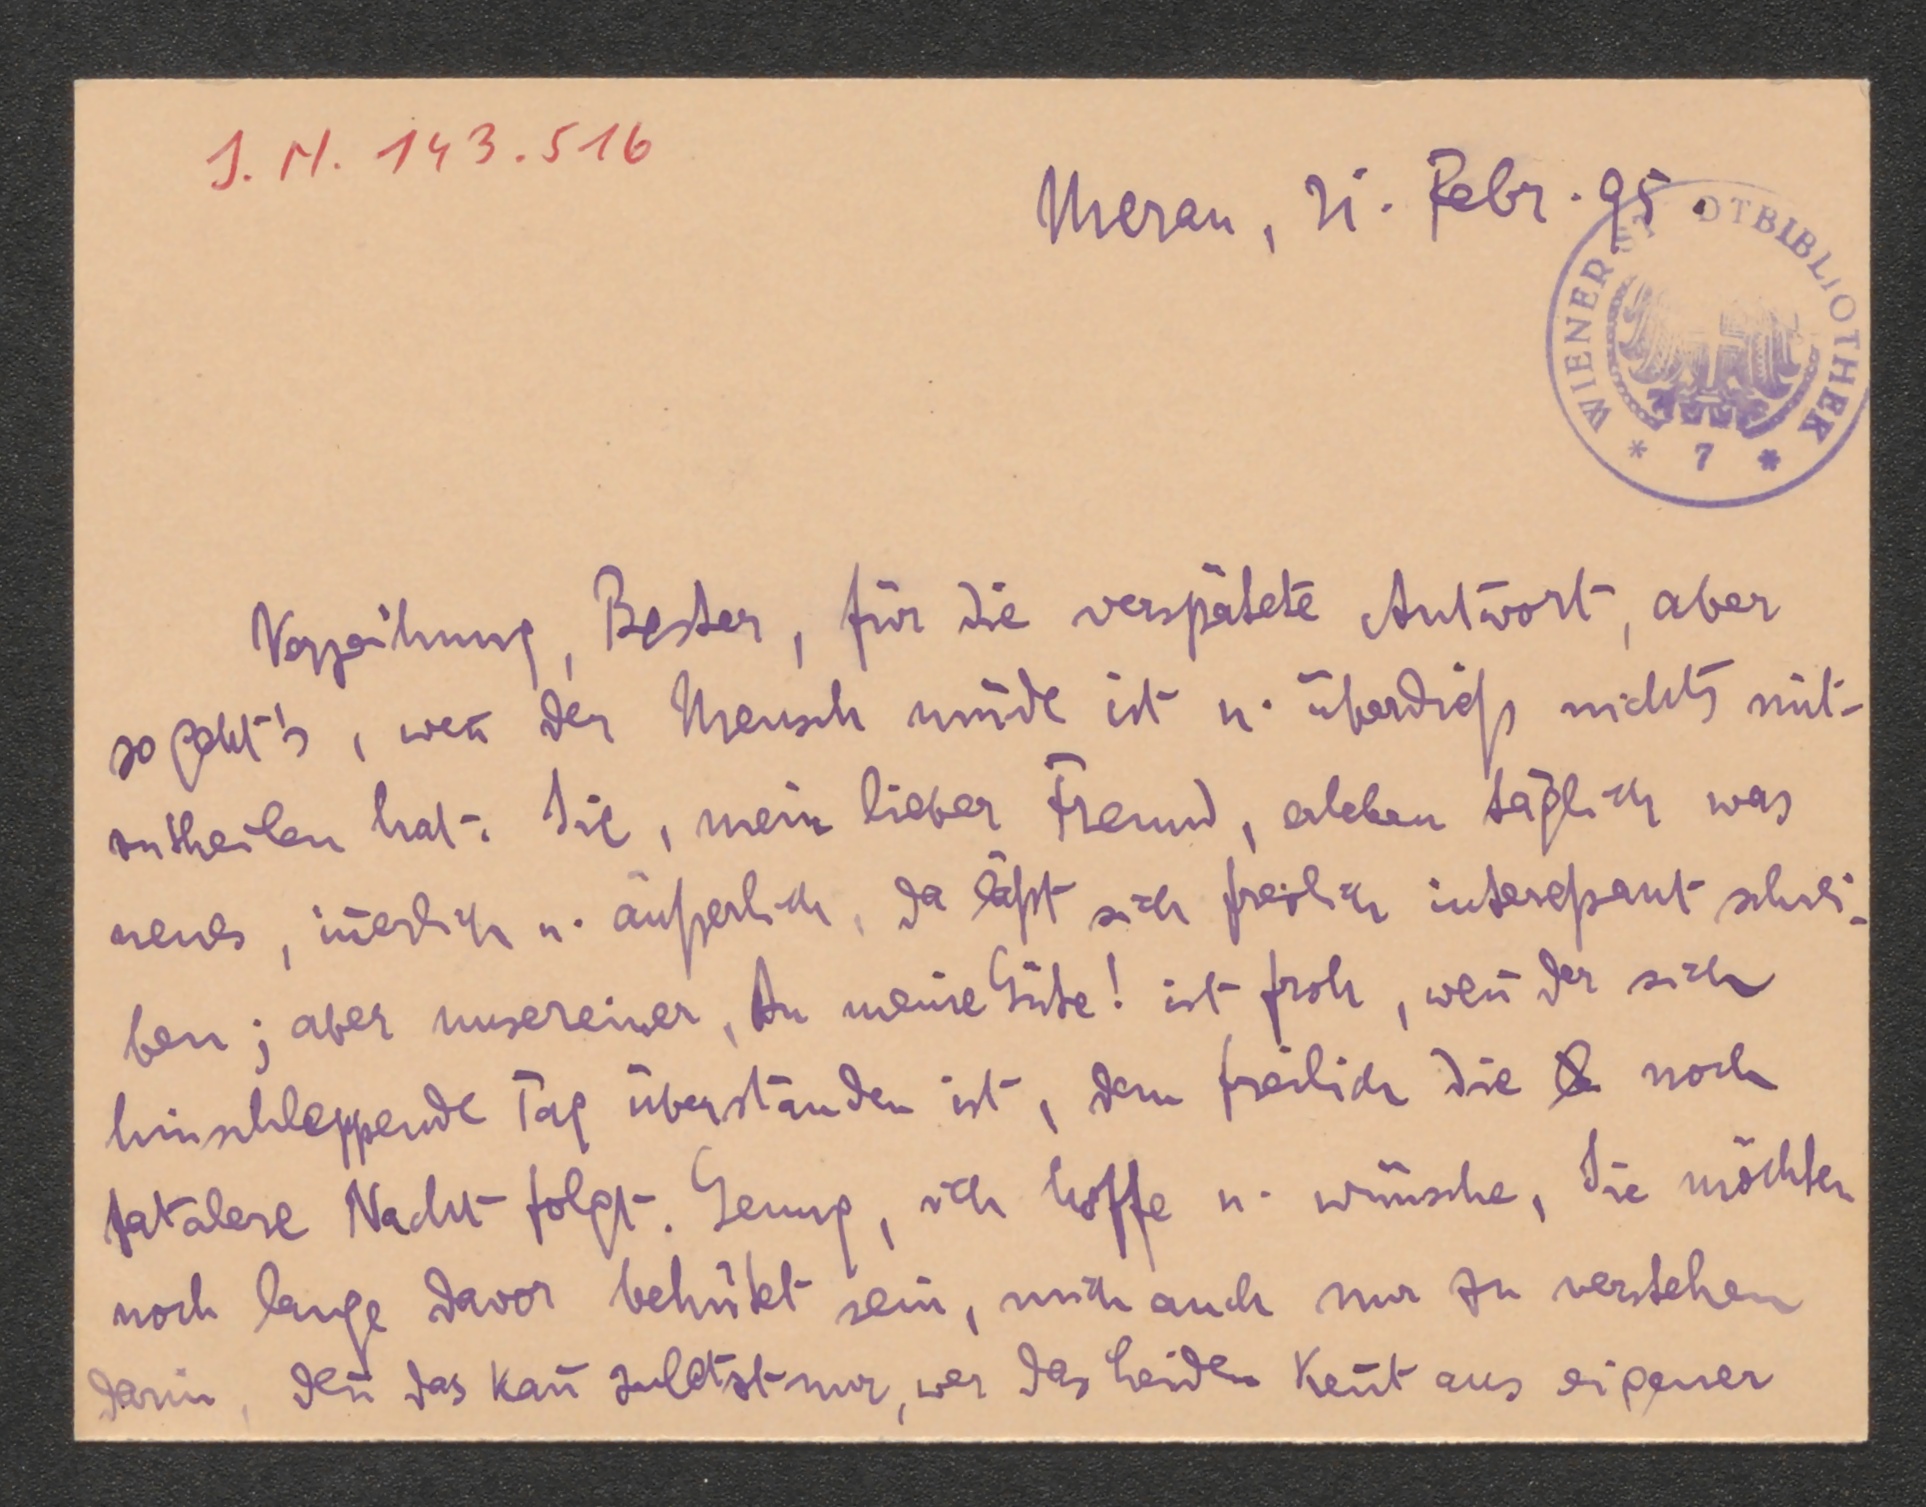 I. N. 143.516
Meran, 21. Febr. 95.
WIENER STADTBIBLIOTHEK
* 7 *
Verzeihung, Bester, für die verspätete Antwort, aber
so geht's, weñ der Mensch müde ist u. überdieß nichts mit-
zutheilen hat. Sie, mein lieber Freund, erleben täglich was
neues, iñerlich u. äußerlich, da läßt sich freilich interessant schrei-
ben; aber unsereiner, du meine Güte! ist froh, weñ der sich
hinschleppende Tag überstanden ist, dem freilich die noch
fatalere Nacht folgt. Genug, ich hoffe u. wünsche, Sie möchten
noch lange davor behütet sein, mich auch nur zu verstehen
darin, deñ das kañ zuletzt nur, wer das Leiden keñt aus eigener